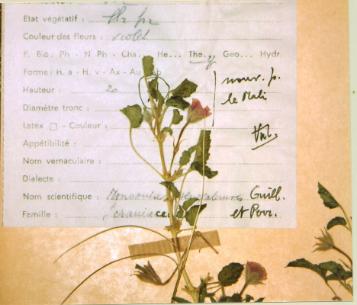 Etat végétatif : Fl. fr
Couleur des fleurs : violet
F. Bio. Ph - N Ph - Cha... He... The... Geo... Hydr.
Forme : H. a - H. v - Ax - Au
nouv. p.
Hauteur : 20
le Mali
Diamètre tronc :
Latex □ - Couleur :
Appétibilité :
Nom vernaculaire :
Dialecte :
Nom scientifique : Monsonia Guill.
Famille : Geraniaceae et Perr.